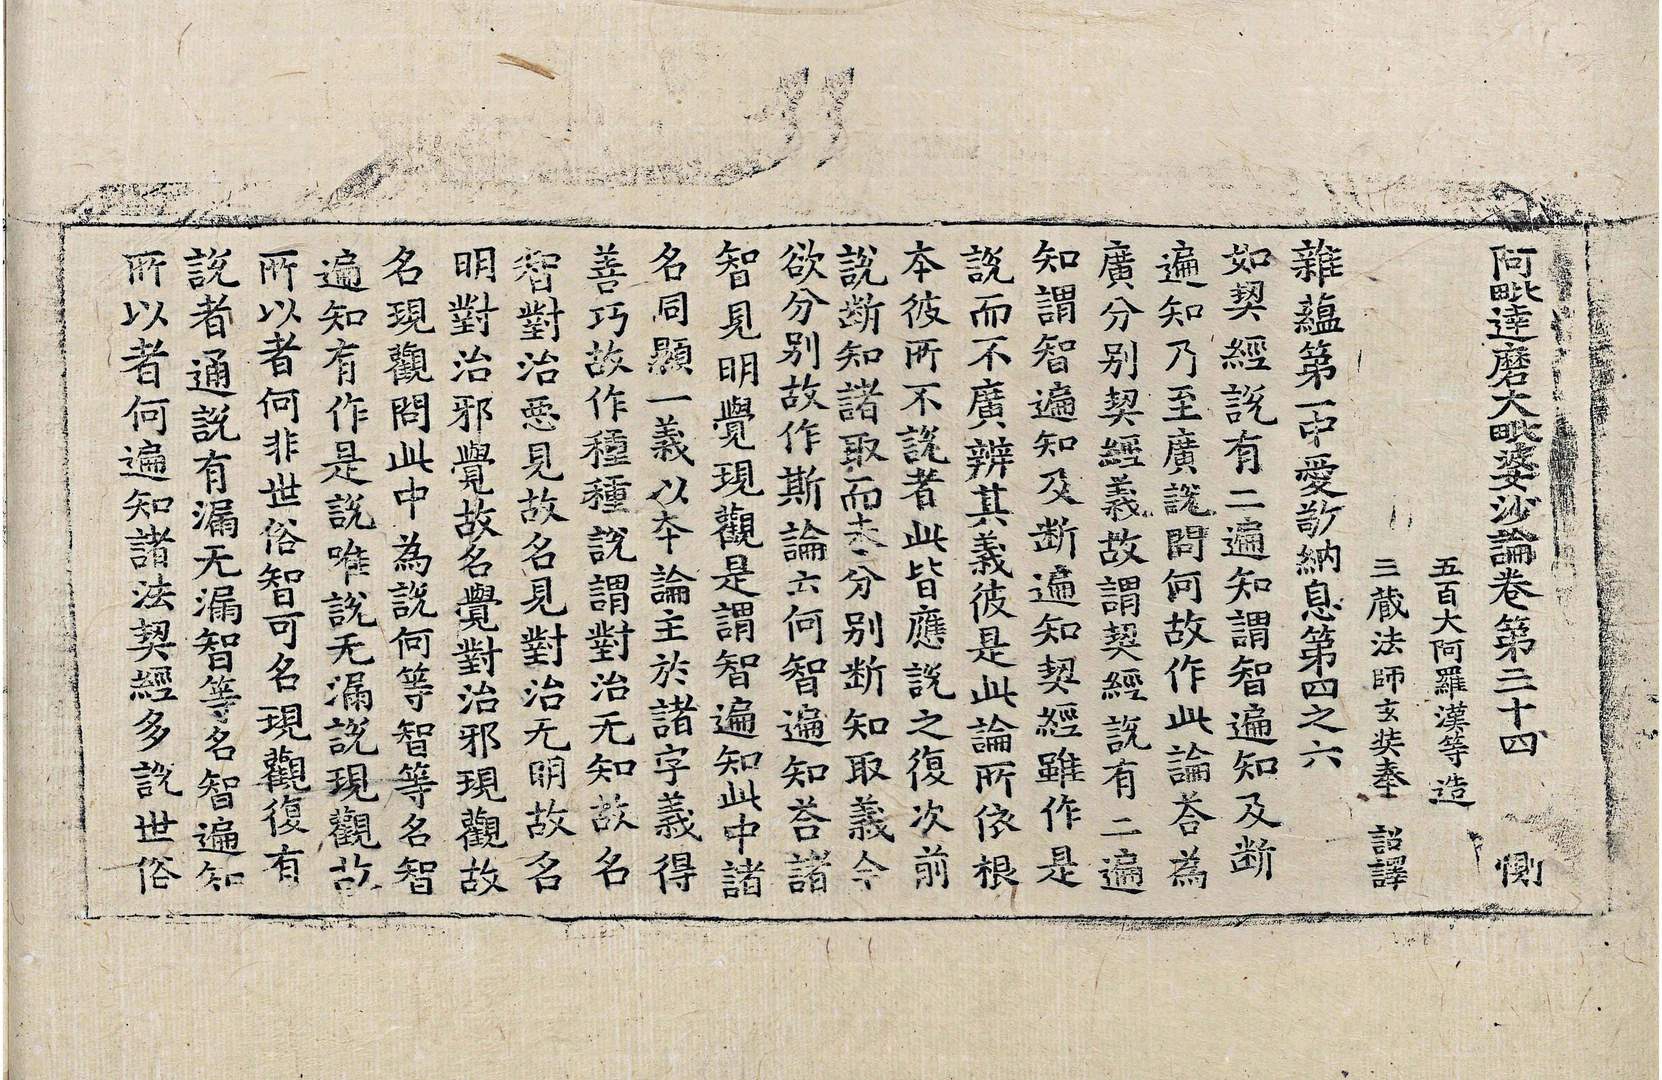 阿毗達磨大毗婆沙論卷第三十四 惻
五百大阿羅漢等造
三藏法師玄奘奉 詔譯
雜蘊第一中愛敬納息第四之六
如契經說有二遍知謂智遍知及断
遍知乃至廣說問何故作此論荅為
廣分别契經義故謂契經說有二遍
知謂智遍知及断遍知契經雖作是
說而不廣辨其義彼是此論所依根
本彼所不說者此皆應說之復次前
說断知諸取而未分别断知取義今
欲分别故作斯論云何智遍知荅諸
智見明覺現觀是謂智遍知此中諸
名同顯一義以本論主於諸字義得
善巧故作種種說謂對治无知故名
智對治惡見故名見對治无明故名
明對治邪覺故名覺對治邪現觀故
名現觀問此中為說何等智等名智
遍知有作是說唯說无漏說現觀故
所以者何非世俗智可名現觀復有
說者通說有漏无漏智等名智遍知
所以者何遍知諸法契經多說世俗